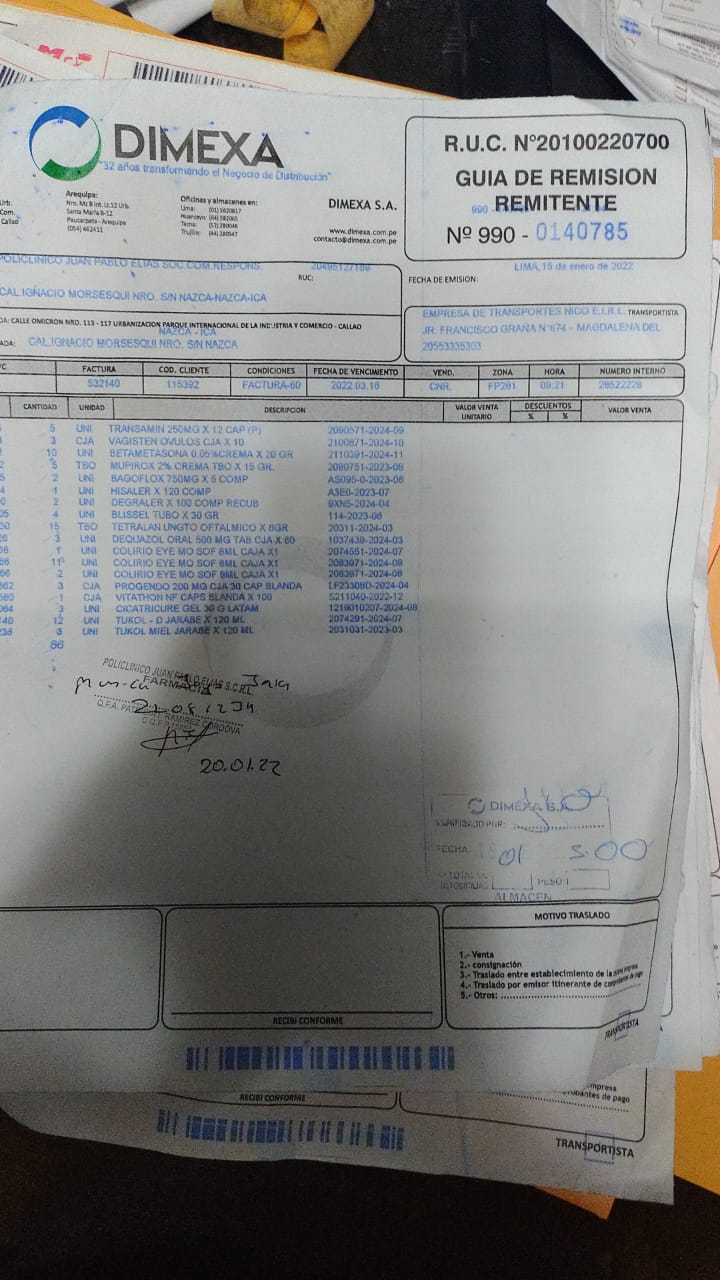 DIMEXA
"32 años transformando el Negocio de Distribución"
Urb.
Com.
Callao
Arequipa:
Nro. Mz B Int. Lt.12 Urb.
Santa María 6-12
Paucarpata - Arequipa
(054) 462411
Oficinas y almacenes en:
Lima:
Huancayo:
Tacna:
Trujillo:
DIMEXA S.A.
www.dimexa.com.pe
contacto@dimexa.com.pe
R.U.C. N°20100220700
GUIA DE REMISION
REMITENTE
990 -
Nº 990 - 0140785
POLICLINICO JUAN PABLO ELIAS SOC.COM.RESPONS.
RUC: 20495127189
CAL.IGNACIO MORSESQUI NRO. S/N NAZCA-NAZCA-ICA
FECHA DE EMISION:
LIMA, 15 de enero de 2022
DA: CALLE OMICRON NRO. 113 - 117 URBANIZACION PARQUE INTERNACIONAL DE LA INDUSTRIA Y COMERCIO - CALLAO
NAZCA - ICA
ADA: CAL.IGNACIO MORSESQUI NRO. S/N NAZCA
EMPRESA DE TRANSPORTES NICO E.I.R.L. TRANSPORTISTA
JR. FRANCISCO GRAÑA N°674 - MAGDALENA DEL
20553335303
FACTURA COD. CLIENTE CONDICIONES FECHA DE VENCIMIENTO VEND. ZONA HORA NUMERO INTERNO
532140 115392 FACTURA-60 2022.03.16 CNR. FP201 09:21 28522228
CANTIDAD UNIDAD DESCRIPCION VALOR VENTA UNITARIO DESCUENTOS % % VALOR VENTA
5 UNI TRANSAMIN 250MG X 12 CAP (P) 2090571-2024-09
3 CJA VAGISTEN OVULOS CJA X 10 2100871-2024-10
10 UNI BETAMETASONA 0.05%CREMA X 20 GR 2110391-2024-11
5 TBO MUPIROX 2% CREMA TBO X 15 GR. 2080751-2023-08
2 UNI BAGOFLOX 750MG X 5 COMP AS095-0-2023-06
1 UNI HISALER X 120 COMP A3E0-2023-07
2 UNI DEGRALER X 100 COMP RECUB 9XN5-2024-04
4 UNI BLISSEL TUBO X 30 GR 114-2023-06
15 TBO TETRALAN UNGTO OFTALMICO X 6GR 20311-2024-03
3 UNI DEQUAZOL ORAL 500 MG TAB CJA X 60 1037439-2024-03
1 UNI COLIRIO EYE MO SOF 8ML CAJA X1 2074551-2024-07
11 UNI COLIRIO EYE MO SOF 8ML CAJA X1 2083971-2024-08
2 UNI COLIRIO EYE MO SOF 8ML CAJA X1 2083971-2024-08
3 CJA PROGENDO 200 MG CJA 30 CAP BLANDA LF23308D-2024-04
1 CJA VITATHON NF CAPS BLANDA X 100 S211040-2022-12
3 UNI CICATRICURE GEL 30 G LATAM 1219010207-2024-08
12 UNI TUKOL - D JARABE X 120 ML 2074291-2024-07
3 UNI TUKOL MIEL JARABE X 120 ML 2031031-2023-03
86
POLICLINICO JUAN PABLO ELIAS S.C.R.L.
FARMACIA
RAMIREZ CORDOVA
20.01.22
DIMEXA S.A.
VERIFICADO POR:
FECHA 01 5:00
PESO
ALMACEN
MOTIVO TRASLADO
1.- Venta
2.- consignación
3.- Traslado entre establecimiento de la misma empresa
4.- Traslado por emisor itinerante de comprobantes de pago
5.- Otros:
RECIBI CONFORME
TRANSPORTISTA
empresa
RECIBI CONFORME
probantes de pago
TRANSPORTISTA